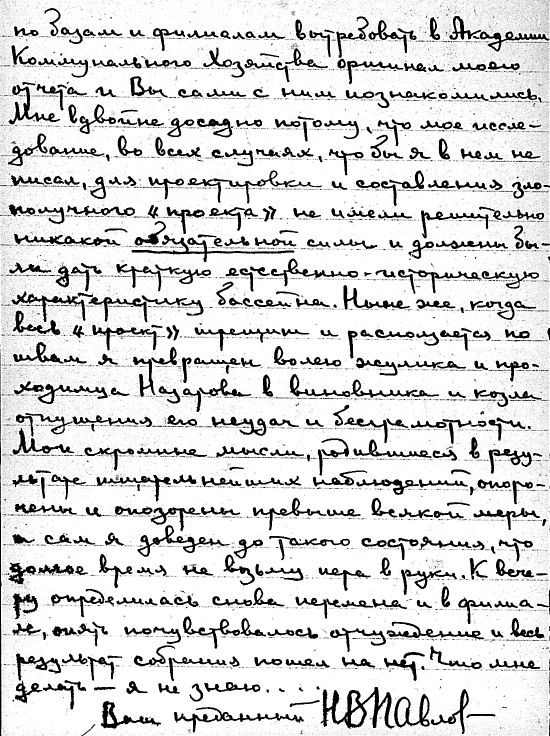 по базам и филиалам вытребовать в Академии
Коммунального Хозяйства оригинал моего
отчета и Вы сами с ним познакомились.
Мне вдвойне досадно потому, что мое иссле-
дование, во всех случаях, что бы я в нем не
писал, для проектировки и составления зло-
получного «проекта» не имели решительно
никакой обязательной силы и должны бы-
ли дать краткую естественно-историческую
характеристику бассейна. Ныне же, когда
весь «проект» трещит и расползается по
швам я превращен волею жулика и про-
ходимца Назарова в виновника и козла
отпущения его неудач и безграмотности.
Мои скромные мысли, родившиеся в резу-
льтате тщательнейших наблюдений, опоро-
чены и опозорены превыше всякой меры,
а сам я доведен до такого состояния, что
долгое время не возьму пера в руки. К вече-
ру определилась снова перемена и в филиа-
ле, опять почувствовалось отчуждение и весь
результат собрания пошел на нет. Что мне
делать — я не знаю....
Ваш преданный НВПавлов